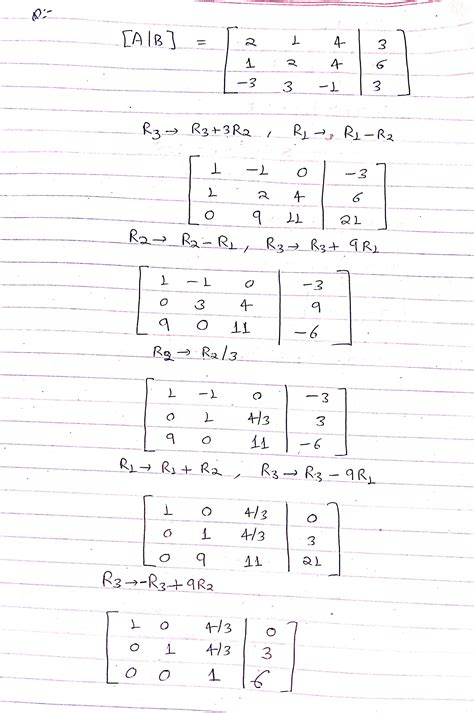 Q:-
[A|B] = [ 2 1 4 | 3
1 2 4 | 6
-3 3 -1 | 3 ]
R3 → R3+3R2 , R1 → R1-R2
[ 1 -1 0 | -3
1 2 4 | 6
0 9 11 | 21 ]
R2 → R2-R1, R3 → R3 + 9R1
[ 1 -1 0 | -3
0 3 4 | 9
9 0 11 | -6 ]
R2 → R2/3
[ 1 -1 0 | -3
0 1 4/3 | 3
9 0 11 | -6 ]
R1 → R1 + R2 , R3 → R3 - 9R1
[ 1 0 4/3 | 0
0 1 4/3 | 3
0 9 11 | 21 ]
R3 → -R3 + 9R2
[ 1 0 4/3 | 0
0 1 4/3 | 3
0 0 1 | 6 ]